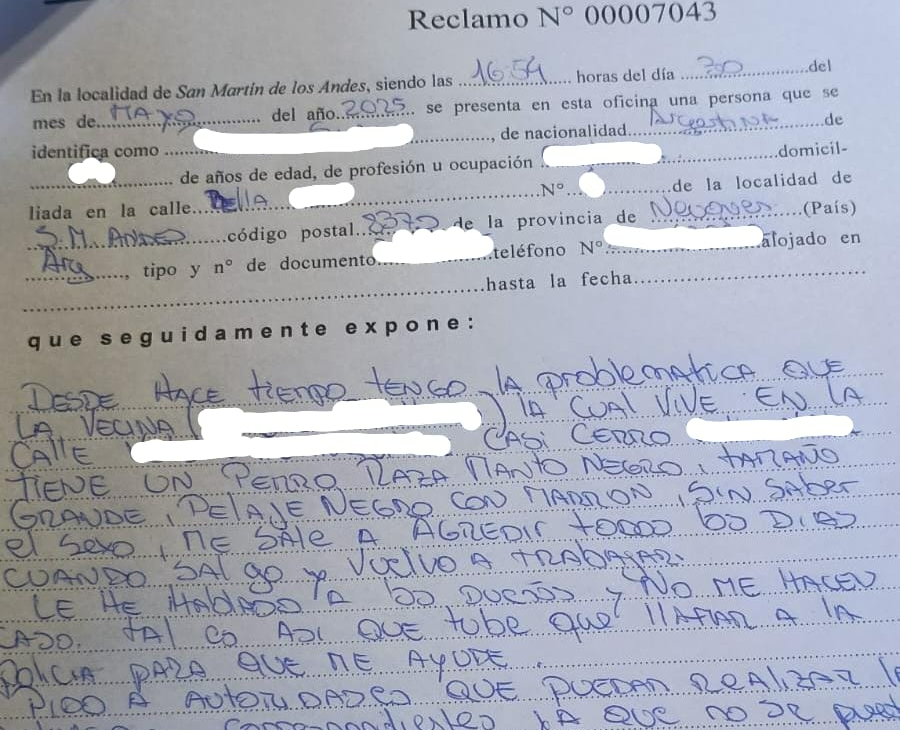 Reclamo N° 00007043
En la localidad de San Martín de los Andes, siendo las 16:54 horas del día 30 del
mes de MAYO del año 2025 se presenta en esta oficina una persona que se
identifica como , de nacionalidad Argentina de
de años de edad, de profesión u ocupación domicil-
liada en la calle Bella N°. de la localidad de
S.M. Andes código postal 8370 de la provincia de Neuquen (País)
Arg , tipo y n° de documento teléfono N° alojado en
hasta la fecha
que seguidamente expone:
DESDE HACE tiempo TENGO LA problematica QUE
LA VECINA ( ) LA CUAL VIVE EN LA
CALLE CASI CERRO
TIENE UN PERRO RAZA MANTO NEGRO, TAMAÑO
GRANDE, PELAJE NEGRO CON MARRON, SIN SABER
el sexo, ME SALE A AGREDIR todos los DIAS
CUANDO SALgo y VUELVO A TRABAJAR.
LE HE HABlado A los DUEÑOS y NO ME HACEN
CASO. TAL es ASI QUE tube que llAMAR A lA
POLICIA PARA QUE ME AYUDE.
PIDO A AUTORIDADES QUE PUEDAN REALIZAR
correspondientes YA QUE NO SE